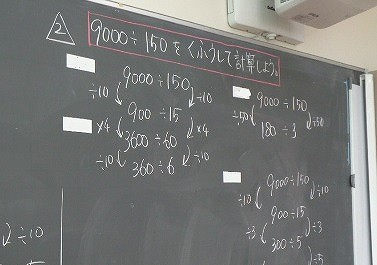 2
9000÷150をくふうして計算しよう。
9000÷150
÷10 ÷10
900÷15
×4 ×4
3600÷60
÷10 ÷10
360÷6
9000÷150
÷50 ÷50
180÷3
9000÷150
÷10 ÷10
900÷15
÷3 ÷3
300÷5
÷5
÷10